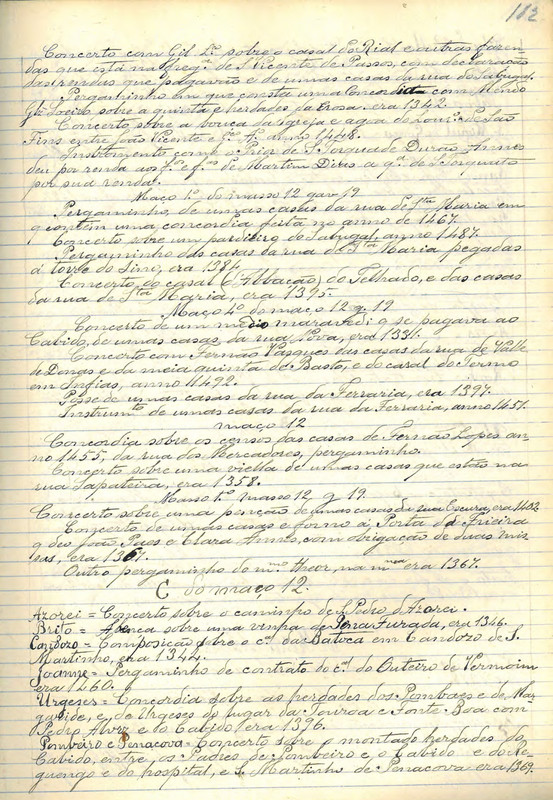 112
Concerto com Gil Lç.º sobre o casal do Rial e outras fazen-
das que está na freg.ª de S. Vicente de Passos, com declaração
das rendas que pagavão e de umas casas da rua do Sabugal.
Pergaminho em que consta uma Concordia com Mendo
Glz Loeiro, sobre a quinta e herdades da Crosa. era 1342.
Concerto, sobre a bouça da Igreja e agoa de Louº. de São
Fins entre João Vicente e Jne. Aº. anno 1448.
Instromento como o Prior de S. Torquade Durão Annes
deu por renda aos fº.s e fª.s de Martim Dires a qª. de S. Torquato
por sua renda.
Maço 1º. do masso 12 gav 19
Pergaminho, de umas casas da rua de Sta Maria em
q contém uma concordia feita no anno de 1467.
Concerto sobre um pardieiro do Sabugal, anno 1487.
Pergaminho das casas da rua de Sta Maria pegadas
á torre do Sino, era 1384.
Concerto do casal (d'Abbação) do Telhado, e das casas
da rua de Sta Maria, era 1395.
Maço 4º do maço 12 g. 19
Concerto de um médio maravedi q se pagava ao
Cabido, de umas casas, da rua Nova, era 1331.
Concerto com Fernão Vasques das casas da rua de Valle
de Donas e da meia quinta de Basto, e do casal do Termo
em Infias, anno 1492.
Posse de umas casas da rua da Ferraria, era 1397.
Instrumto de umas casas da rua da Ferraria, anno 1457.
maço 12
Concordia sobre os censos das casas de Fernão Lopes an-
no 1455, da rua dos Mercadores, pergaminho.
Concerto sobre uma viella de umas casas que estão na
rua Sapateira, era 1358.
Masso 1º. masso 12 g 19.
Concerto sobre uma penção de umas casas da rua Escura, era 1402
Concerto de umas casas e forno á Porta da Frieira
q deu João Paes e Clara Annes, com obrigação de duas mis-
sas, era 1367.
Outro pergaminho do mmo theor, na mma era 1367.
C do maço 12.
Azorei = Concerto sobre o caminho de S. Pedro d'Azorei.
Brito = Avença sobre uma vinha de Pena Furada, era 1346.
Candozo = Composição sobre o cal. da Batoca em Candozo de S.
Martinho, era 1342.
Joanne = Pergaminho de contrato do cal. do Outeiro de Vermoim
era 1260.
Urgeses = Concordia sobre as herdades dos Pombaes e de Mar-
garide, e, de Urgeses do lugar da Touroa e Fonte Boa com
Pedro Alvrz e o Cabido, era 1396.
Pombeiro e Penacova = Concerto sobre o montado herdades do
Cabido, entre, os Padres de Pombeiro e o Cabido e do Re-
guengo e do hospital, e S. Martinho de Penacova era 1369.